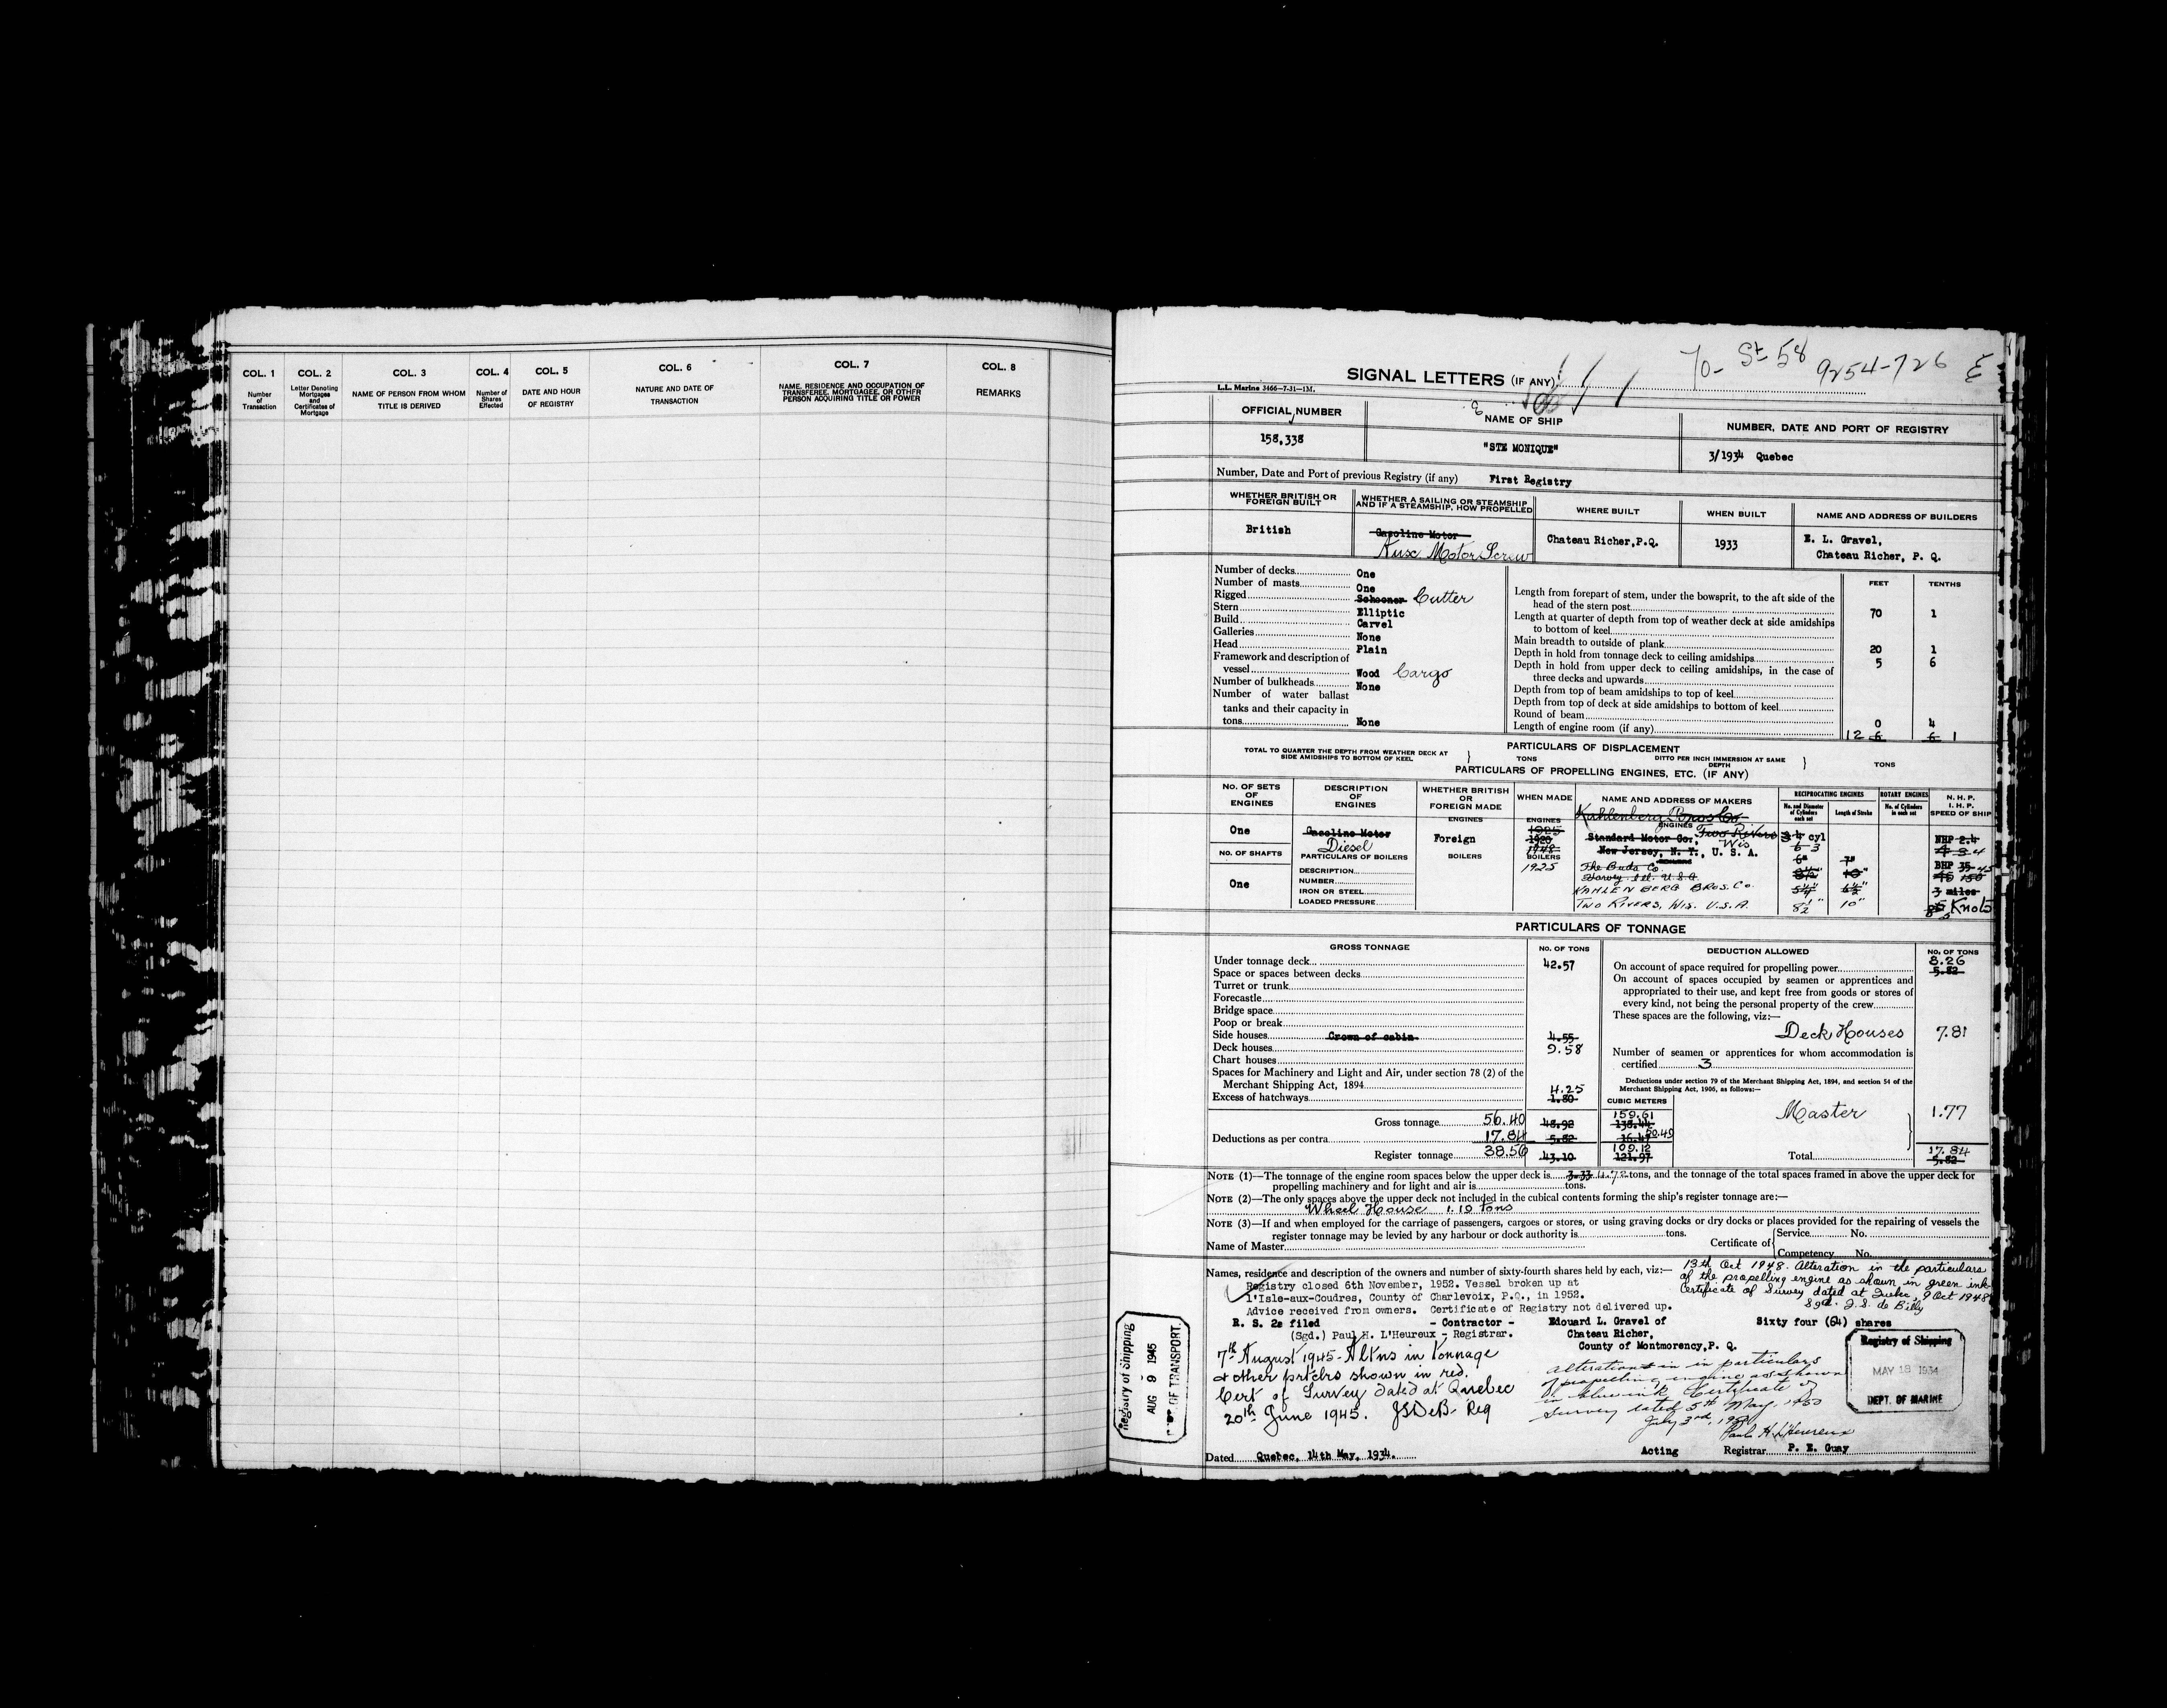 COL. 1 COL. 2 COL. 3 COL. 4 COL. 5 COL. 6 COL. 7 COL. 8
Number of Transaction
Letter Denoting Mortgages and Certificates of Mortgage
NAME OF PERSON FROM WHOM TITLE IS DERIVED
Number of Shares Effected
DATE AND HOUR OF REGISTRY
NATURE AND DATE OF TRANSACTION
NAME, RESIDENCE AND OCCUPATION OF TRANSFEREE, MORTGAGEE, OR OTHER PERSON ACQUIRING TITLE OR POWER
REMARKS
70- St 58 9254-726
SIGNAL LETTERS (IF ANY)
L.L. Marine 3466-7-31-1M.
OFFICIAL NUMBER NAME OF SHIP NUMBER, DATE AND PORT OF REGISTRY
158,338 "STE MONIQUE" 3/1934 Quebec
Number, Date and Port of previous Registry (if any) First Registry
WHETHER BRITISH OR FOREIGN BUILT
WHETHER A SAILING OR STEAMSHIP AND IF A STEAMSHIP, HOW PROPELLED
WHERE BUILT WHEN BUILT NAME AND ADDRESS OF BUILDERS
British Gasoline Motor Chateau Richer, P.Q. 1933 E. L. Gravel,
Motor Screw Chateau Richer, P. Q.
Number of decks One
Number of masts One
Rigged Schooner Cutter
Stern Elliptic
Build Carvel
Galleries None
Head Plain
Framework and description of
vessel Wood Cargo
Number of bulkheads None
Number of water ballast
tanks and their capacity in
tons None
FEET TENTHS
Length from forepart of stem, under the bowsprit, to the aft side of the
head of the stern post 70 1
Length at quarter of depth from top of weather deck at side amidships
to bottom of keel
Main breadth to outside of plank 20 1
Depth in hold from tonnage deck to ceiling amidships 5 6
Depth in hold from upper deck to ceiling amidships, in the case of
three decks and upwards
Depth from top of beam amidships to top of keel
Depth from top of deck at side amidships to bottom of keel
Round of beam 0 4
Length of engine room (if any) 12 6 6 1
PARTICULARS OF DISPLACEMENT
TOTAL TO QUARTER THE DEPTH FROM WEATHER DECK AT SIDE AMIDSHIPS TO BOTTOM OF KEEL } TONS DITTO PER INCH IMMERSION AT SAME DEPTH } TONS
PARTICULARS OF PROPELLING ENGINES, ETC. (IF ANY)
No. OF SETS OF ENGINES
DESCRIPTION OF ENGINES
WHETHER BRITISH OR FOREIGN MADE
WHEN MADE
NAME AND ADDRESS OF MAKERS
RECIPROCATING ENGINES ROTARY ENGINES
No. and Diameter of Cylinders each set Length of Stroke No. of Cylinders in each set
N. H. P. I. H. P. SPEED OF SHIP
Kahlenberg Bros Co
ENGINES ENGINES ENGINES
One Gasoline Motor Foreign 1925 1920 Standard Motor Co, Two Rivers 3 4 cyl NHP 2.4
Diesel 1948 New Jersey, N. Y., U. S. A. Wis 6 3
No. OF SHAFTS PARTICULARS OF BOILERS BOILERS BOILERS
1925 The Buda Co. 6" 7" BHP 35 45
DESCRIPTION Harvey Ill. U.S.A. 8½" 10" 150
One NUMBER
IRON OR STEEL KAHLENBERG BROS. Co. 3 miles
LOADED PRESSURE TWO RIVERS, WIS. U.S.A. 8½" 10" Knots
PARTICULARS OF TONNAGE
GROSS TONNAGE No. OF TONS
Under tonnage deck 42.57
Space or spaces between decks
Turret or trunk
Forecastle
Bridge space
Poop or break
Side houses Crown of cabin 4.55
Deck houses 9.58
Chart houses
Spaces for Machinery and Light and Air, under section 78 (2) of the
Merchant Shipping Act, 1894
Excess of hatchways 4.25 1.80
CUBIC METERS
Gross tonnage 56.40 48.92 159.61 138.44
Deductions as per contra 17.84 5.82 16.47 50.49
Register tonnage 38.56 43.10 109.12 121.97
DEDUCTION ALLOWED No. OF TONS
On account of space required for propelling power 8.26 5.82
On account of spaces occupied by seamen or apprentices and
appropriated to their use, and kept free from goods or stores of
every kind, not being the personal property of the crew
These spaces are the following, viz:—
Deck Houses 7.81
Number of seamen or apprentices for whom accommodation is
certified 3
Deductions under section 79 of the Merchant Shipping Act, 1894, and section 54 of the
Merchant Shipping Act, 1906, as follows:—
Master 1.77
Total 17.84 5.82
NOTE (1)—The tonnage of the engine room spaces below the upper deck is 3.33 4.72 tons, and the tonnage of the total spaces framed in above the upper deck for
propelling machinery and for light and air is tons.
NOTE (2)—The only spaces above the upper deck not included in the cubical contents forming the ship's register tonnage are:—
Wheel House 1.10 tons
NOTE (3)—If and when employed for the carriage of passengers, cargoes or stores, or using graving docks or dry docks or places provided for the repairing of vessels the
register tonnage may be levied by any harbour or dock authority is tons.
Name of Master Certificate of { Service No.
Competency No.
Names, residence and description of the owners and number of sixty-fourth shares held by each, viz:—
Registry closed 6th November, 1952. Vessel broken up at
l'Isle-aux-Coudres, County of Charlevoix, P.Q., in 1952.
Advice received from owners. Certificate of Registry not delivered up.
13th Oct 1948. Alteration in the particulars
of the propelling engine as shown in green ink
Certificate of Survey dated at Quebec, 9 Oct 1948
Sgd. J. S. de Billy
R. S. 2s filed - Contractor - Edouard L. Gravel of Sixty four (64) shares
(Sgd.) Paul H. L'Heureux - Registrar. Chateau Richer,
County of Montmorency, P. Q.
7th August 1945 - Altns in tonnage
& other prtclrs shown in red.
Cert of Survey dated at Quebec
20th June 1945. JSDeB. Reg
Alteration in in particulars
of propelling engine as shown
in blue ink Certificate of
Survey dated 5th May, 1950
July 3rd, 1950
Paul H. L'Heureux
Registry of Shipping
AUG 9 1945
OF TRANSPORT
Registry of Shipping
MAY 18 1934
DEPT. OF MARINE
Dated Quebec, 14th May, 1934. Acting Registrar P. E. Guay